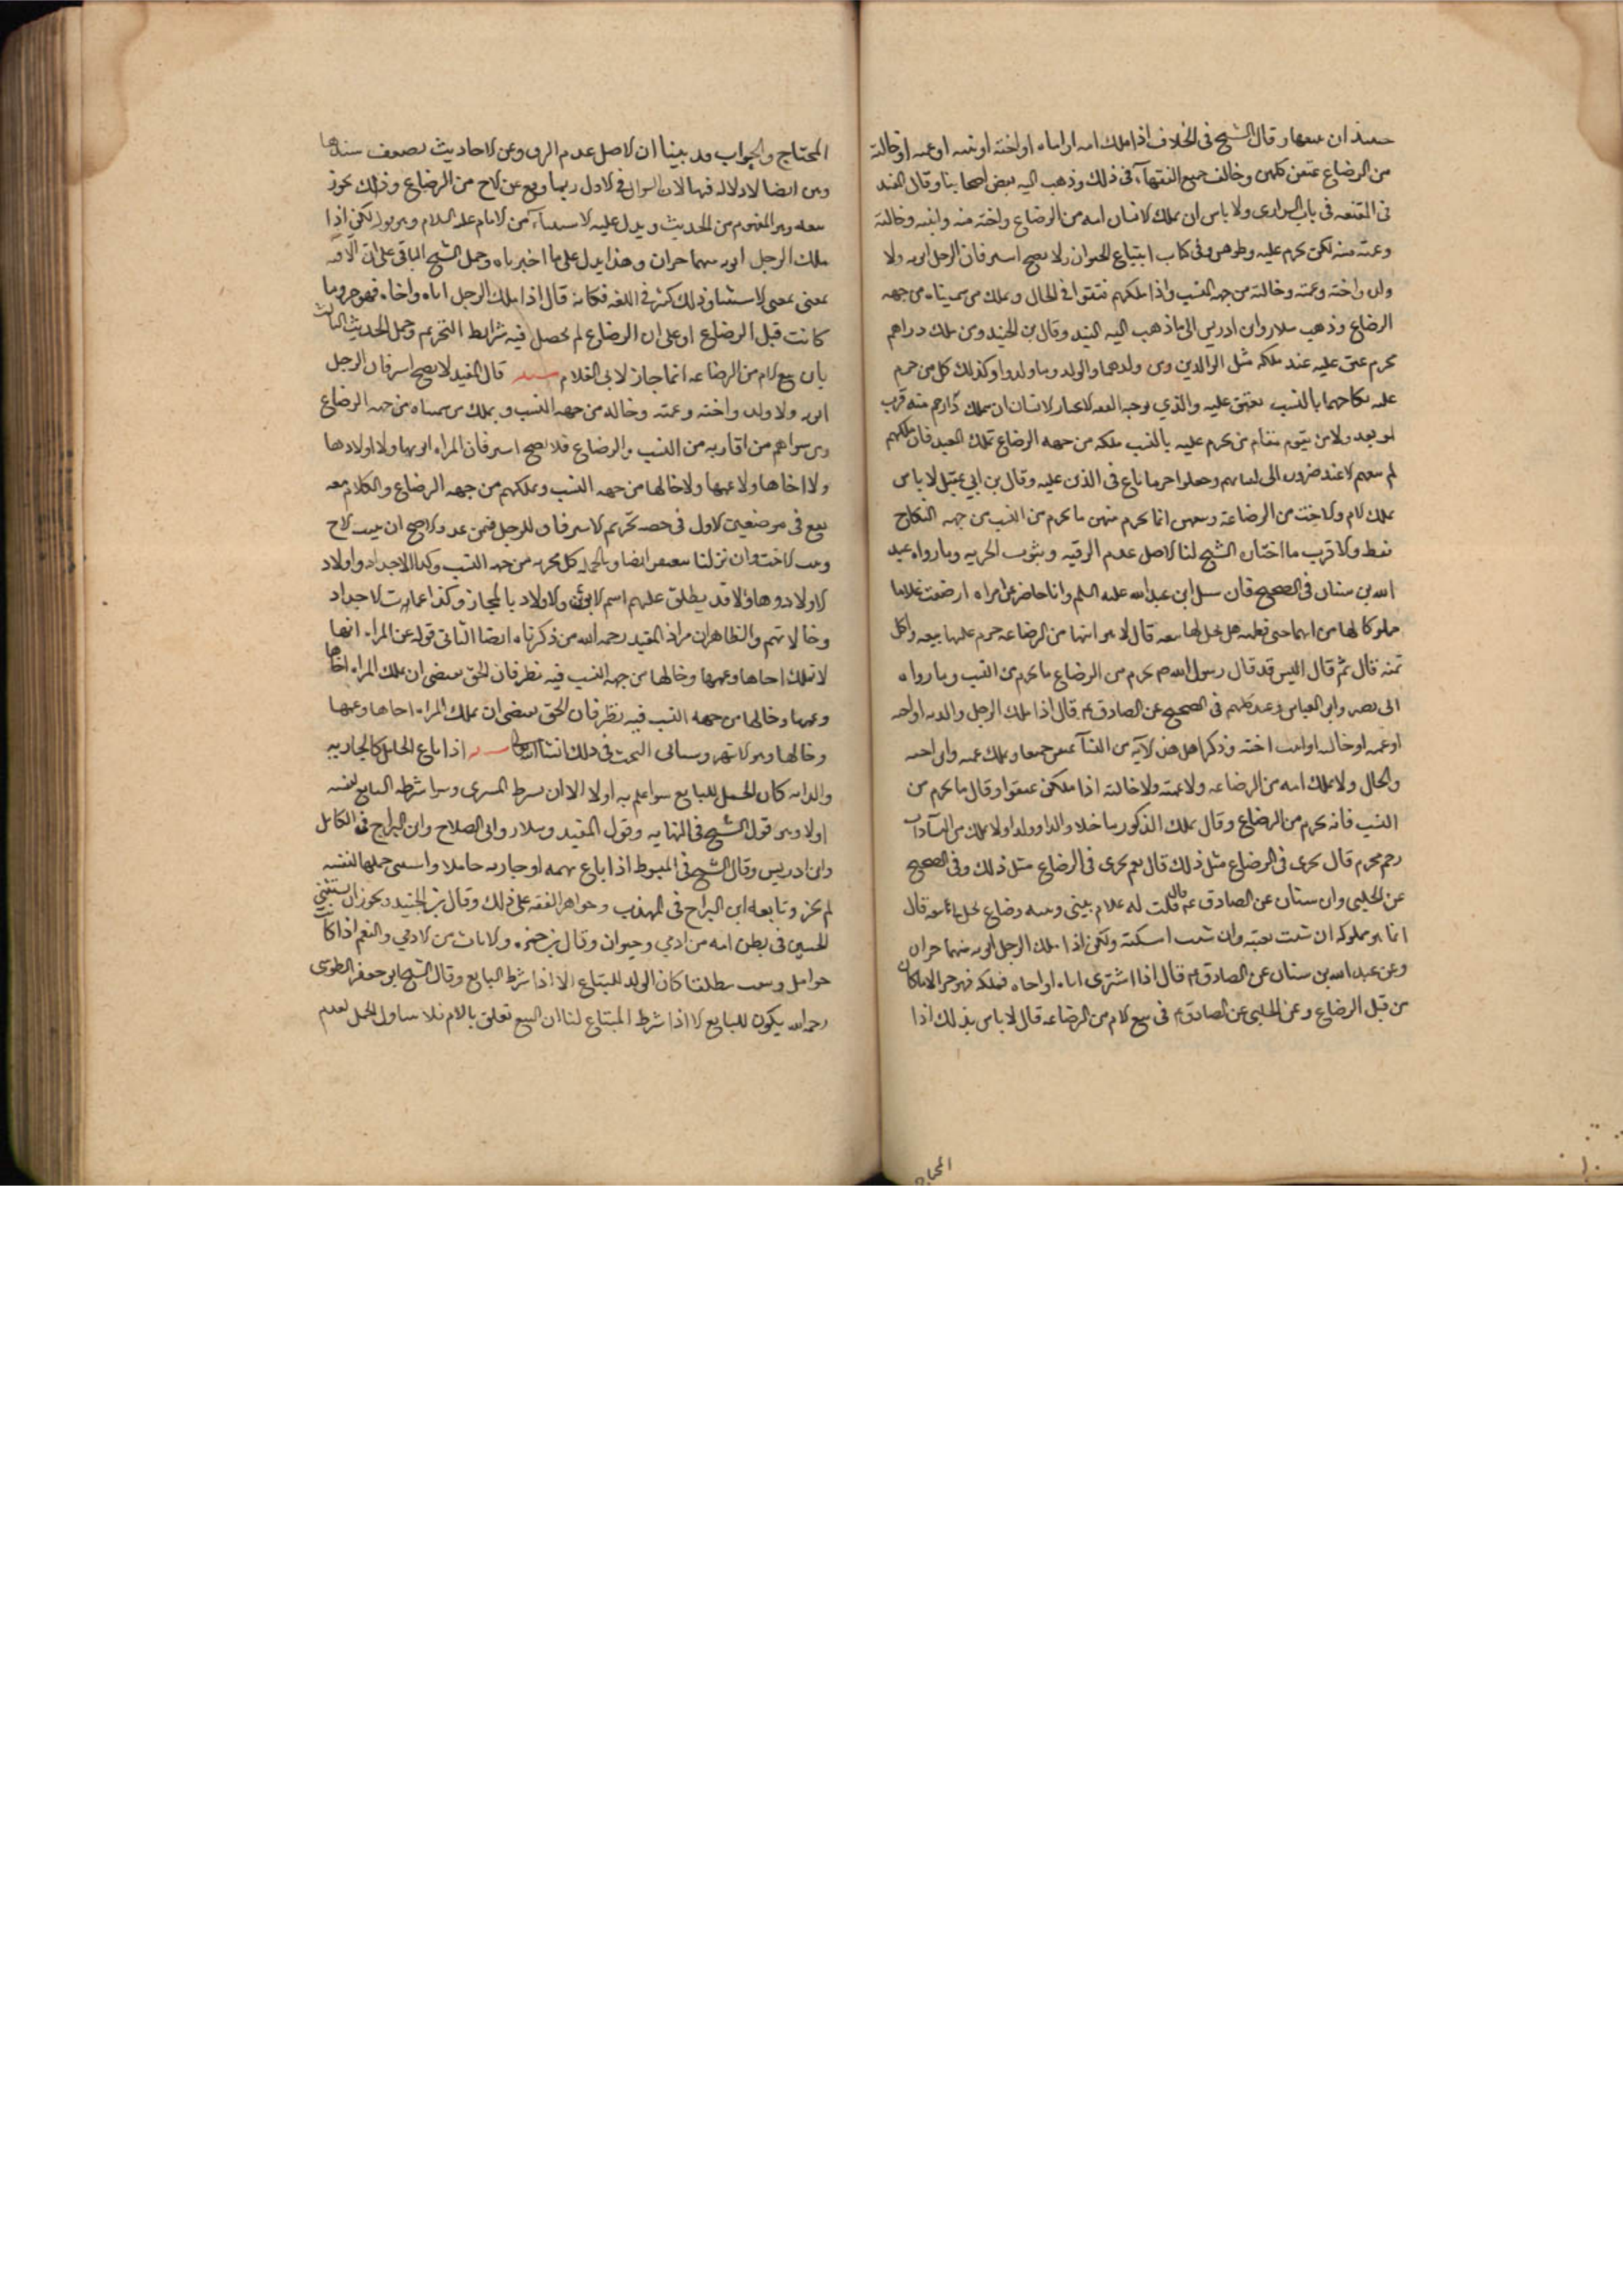 ان وقال الشيخ في الخلاف اذا ملك امه او اباه او اخته او بنته او عمته او خالته
من الرضاع عتقن كلهن وخالف جميع الفقهآء في ذلك وذهب اليه بعض اصحابنا وقال المفيد
في المقنعه في باب السراري ولا باس ان يملك الانسان امه من الرضاع واخته منه وابنته وخالته
وعمته منه لكن يحرم عليه وطوهن وفي كتاب ابتياع الحيوان ولا يصح استرقاق الرجل ابويه ولا
ولده واخته وعمته وخالته من جهه النسب واذا ملكهم عتقوا في الحال ويملك من سميناه من جهه
الرضاع وذهب سلار وابن ادريس الى ما ذهب اليه المفيد وقال بن الجنيد ومن ملك ذا رحم
محرم عتق عليه عند ملكه مثل الوالدين ومن ولدهما والولد وما ولدوا وكذلك كل من حرم
عليه نكاحهما بالنسب يعتق عليه والذي يوجبه الفقه لا يختار الانسان ان يملك ذا رحم منه قرب
او بعد ولا من يقوم مقام من يحرم عليه بالنسب ملكه من جهه الرضاع تملك العبيد فان ملكهم
لم يبعهم الا عند ضروره الى اثمانهم وجعلوا اخر ما يباع في الدين عليه وقال بن ابي عقيل لا باس
بملك الام والاخت من الرضاعة وبيعهن انما يحرم منهن ما يحرم من النسب من جهه النكاح
فقط والاقرب ما اختاره الشيخ لنا الاصل عدم الرقيه وثبوت الحريه وما رواه عبد
الله بن سنان في الصحيح قال سئل ابن عبد الله عليه السلم وانا حاضر عن امراه ارضعت غلاما
مملوكا لها من لبنها حتى فطمته هل يحل لها بيعه قال لا هو ابنها من الرضاعه حرم عليها بيعه واكل
ثمنه قال ثم قال اليس قد قال رسول الله ص يحرم من الرضاع ما يحرم من النسب وما رواه
ابى بصير وابى العباس وعبيد كلهم في الصحيح عن الصادق ع قال اذا ملك الرجل والديه او اخته
او عمته او خالته او ابنت اخته وذكر اهل هذه الآيه من النسآ عتقن جميعا ويملك عمه وابن اخيه
والخال ولا يملك امه من الرضاعه ولا عمته ولا خالته اذا ملكن عتقوا وقال ما يحرم من
النسب فانه يحرم من الرضاع وقال يملك الذكور ما خلا والدا وولدا ولا يملك من النسآ ذات
رحم محرم قال يجرى في الرضاع مثل ذلك قال نعم يجرى في الرضاع مثل ذلك وفي الصحيح
عن الحلبي وابن سنان عن الصادق ع قال قلت له غلام بيني وبينه رضاع يحل لي بيعه قال
انما هو مملوكه ان شئت بعته وان شئت امسكته ولكن اذا ملك الرجل ابويه فهما حران
وعن عبد الله بن سنان عن الصادق ع قال اذا اشترى اباه او اخاه فملكه فهو حر الا ما كان
من قبل الرضاع وعن الحلبي عن الصادق ع في بيع الام من الرضاعه قال لا باس بذلك اذا
المحتاج
المحتاج والجواب قد بينا ان الاصل عدم الرق وعن الاحاديث بضعف سندها
وهى ايضا لا دلاله فيها لان السؤال في الاول ربما وقع عن الاخ من الرضاع وذلك يجوز
بيعه وهو المفهوم من الحديث ويدل عليه الاستثناء من الامام عليه السلام وهو قوله لكن اذا
ملك الرجل ابويه فهما حران وهذا يدل على ما اخبرناه وحمل الشيخ الباقي على ان الا فيه
بمعنى لا استثنا وذلك كثير في اللغه فكانه قال اذا ملك الرجل اباه واخاه فهو حر وما
كانت قبل الرضاع او على ان الرضاع لم يحصل فيه شرايط التحريم وحمل الحديث الثالث
بان بيع الام من الرضاعه انما جاز لابي الغلام مسئله قال المفيد لا يصح استرقاق الرجل
ابويه ولا ولده واخته وعمته وخالته من جهه النسب ويملك من سميناه من جهه الرضاع
ومن سواهم من اقاربه من النسب والرضاع فلا يصح استرقاق المراه ابويها ولا اولادها
ولا اخاها ولا عمها ولا خالها من جهه النسب وتملكهم من جهه الرضاع والكلام معه
يقع في موضعين الاول في حصه تحريم الاسترقاق للرجل فيمن عد والاصح ان بنت الاخ
وبنت الاخت وان نزلتا ايضا وبالجمله كل محرمه من جهه النسب وكذا الاجداد واولاد
الاولاد وهاولاء قد يطلق عليهم اسم الابوين والاولاد بالمجاز وكذا عمات الاجداد
وخالاتهم والظاهر ان مراد المفيد رحمه الله من ذكرناه ايضا الثاني قوله عن المراه انها
لا تملك اخاها وعمها وخالها من جهه النسب فيه نظر فان الحق يقتضى ان تملك المراه اخاها
وعمها وخالها من جهه النسب فيه نظر فان الحق يقتضى ان تملك المراه اخاها وعمها
وخالها وهو الاشهر وسياتي البحث في ذلك انشا الله مسئله اذا باع الحامل كالجاريه
والدابه كان الحمل للبايع سوا علم به او لا الا ان يشرط المشترى وسوا شرطه البايع لنفسه
اولا وهو قول الشيخ في النهايه وقول المفيد وسلار وابى الصلاح وابن البراج في الكامل
وابن ادريس وقال الشيخ في المبسوط اذا باع بهيمه او جاريه حاملا واستثنى حملها لنفسه
لم يجز وتابعه ابن البراج في المهذب وجواهر الفقه على ذلك وقال بن الجنيد ويجوز ان يستثني
الجنين في بطن امه من ادمي وحيوان وقال بن حمزه والاناث من الادمي والنعم اذا كانت
حوامل وبيعت مطلقا كان الولد للمبتاع الا اذا شرط البايع وقال الشيخ ابو جعفر الطوسى
رحمه الله يكون للبايع الا اذا شرط المبتاع لنا ان البيع تعلق بالام فلا يتناول الحمل لعدم